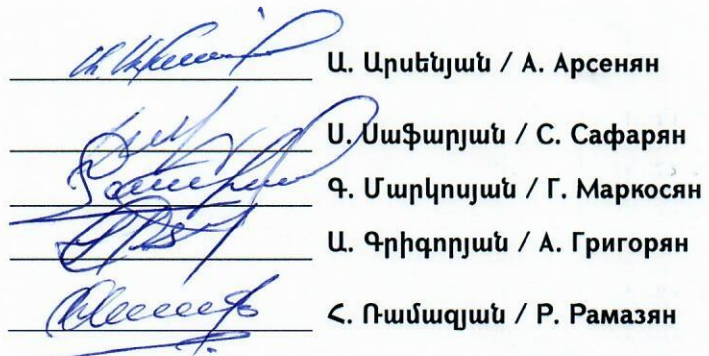 Ա. Արսենյան / А. Арсенян
Ս. Սաֆարյան / С. Сафарян
Գ. Մարկոսյան / Г. Маркосян
Ա. Գրիգորյան / А. Григорян
Հ. Ռամազյան / Р. Рамазян